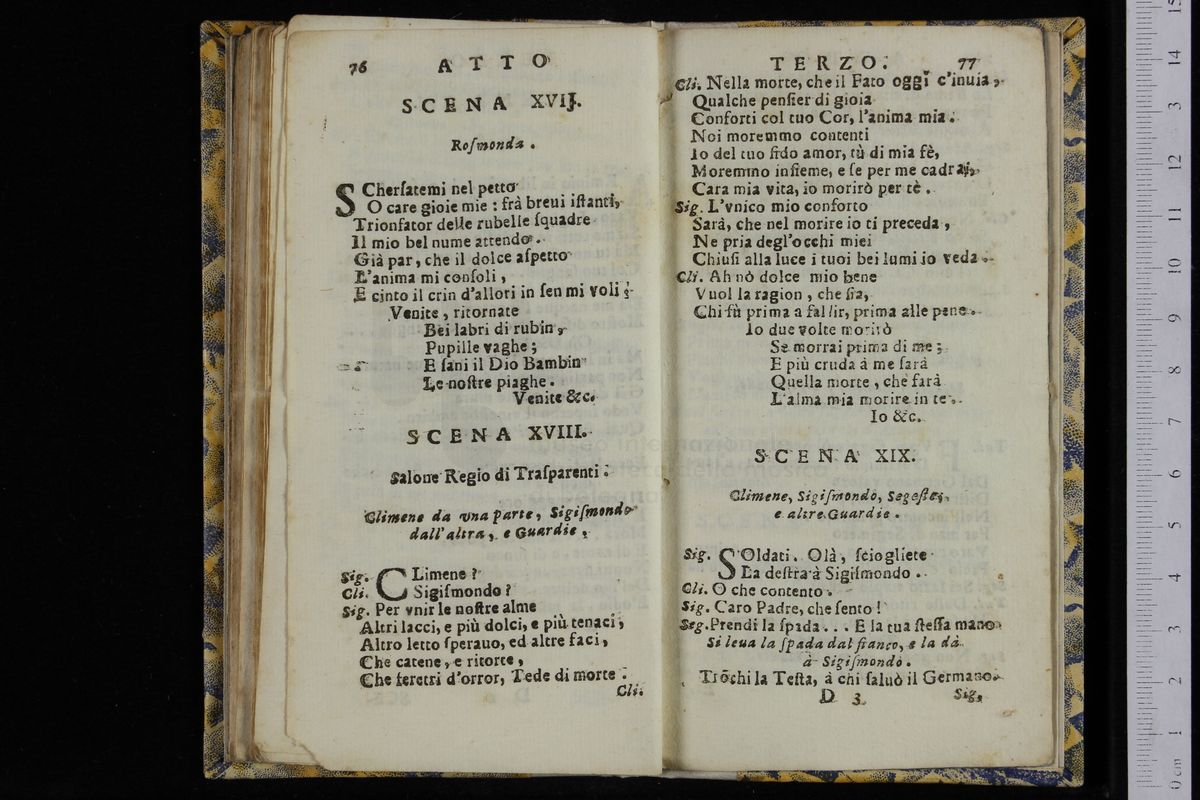 76 ATTO
SCENA XVII.
Roſmonda.
SCherſatemi nel petto
O care gioie mie : frà breui iſtanti,
Trionfator delle rubelle ſquadre
Il mio bel nume attendo.
Già par, che il dolce aſpetto
L'anima mi conſoli,
E cinto il crin d'allori in ſen mi voli ;
Venite, ritornate
Bei labri di rubin,
Pupille vaghe ;
E ſani il Dio Bambin
Le noſtre piaghe.
Venite &c.
SCENA XVIII.
Salone Regio di Traſparenti.
Climene da vna parte, Sigiſmondo
dall'altra, e Guardie.
Sig. CLimene ?
Cli. Sigiſmondo ?
Sig. Per vnir le noſtre alme
Altri lacci, e più dolci, e più tenaci,
Altro letto ſperauo, ed altre faci,
Che catene, e ritorte,
Che feretri d'orror, Tede di morte.
Cli.
TERZO. 77
Cli. Nella morte, che il Fato oggi c'inuia,
Qualche penſier di gioia
Conforti col tuo Cor, l'anima mia.
Noi moremmo contenti
Io del tuo fido amor, tù di mia fè,
Moremmo inſieme, e ſe per me cadrai,
Cara mia vita, io morirò per tè.
Sig. L'vnico mio conforto
Sarà, che nel morire io ti preceda,
Ne pria degl'occhi miei
Chiuſi alla luce i tuoi bei lumi io veda.
Cli. Ah nò dolce mio bene
Vuol la ragion, che ſia,
Chi fù prima a fallir, prima alle pene.
Io due volte morirò
Se morrai prima di me ;
E più cruda à me ſarà
Quella morte, che farà
L'alma mia morire in te.
Io &c.
SCENA XIX.
Climene, Sigiſmondo, Segeſte,
e altre Guardie.
Sig. SOldati. Olà, ſciogliete
La deſtra à Sigiſmondo.
Cli. O che contento.
Sig. Caro Padre, che ſento !
Seg. Prendi la ſpada... E la tua ſteſſa mano
Si leua la ſpada dal fianco, e la dà
à Sigiſmondo.
Trõchi la Teſta, à chi ſaluò il Germano.
D 3 Sig,